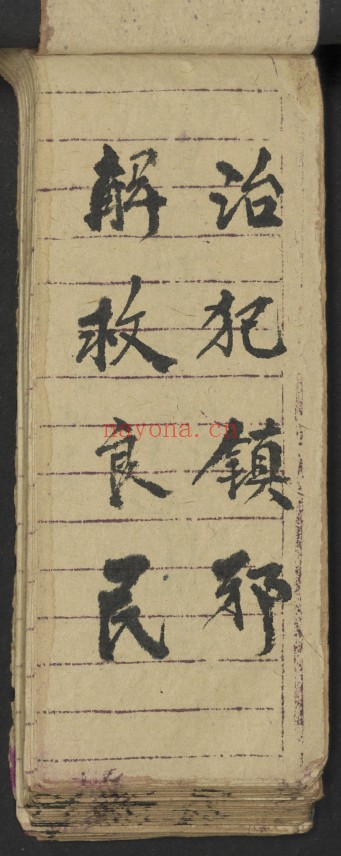 治犯鎮邪
解救良民
nayona.cn